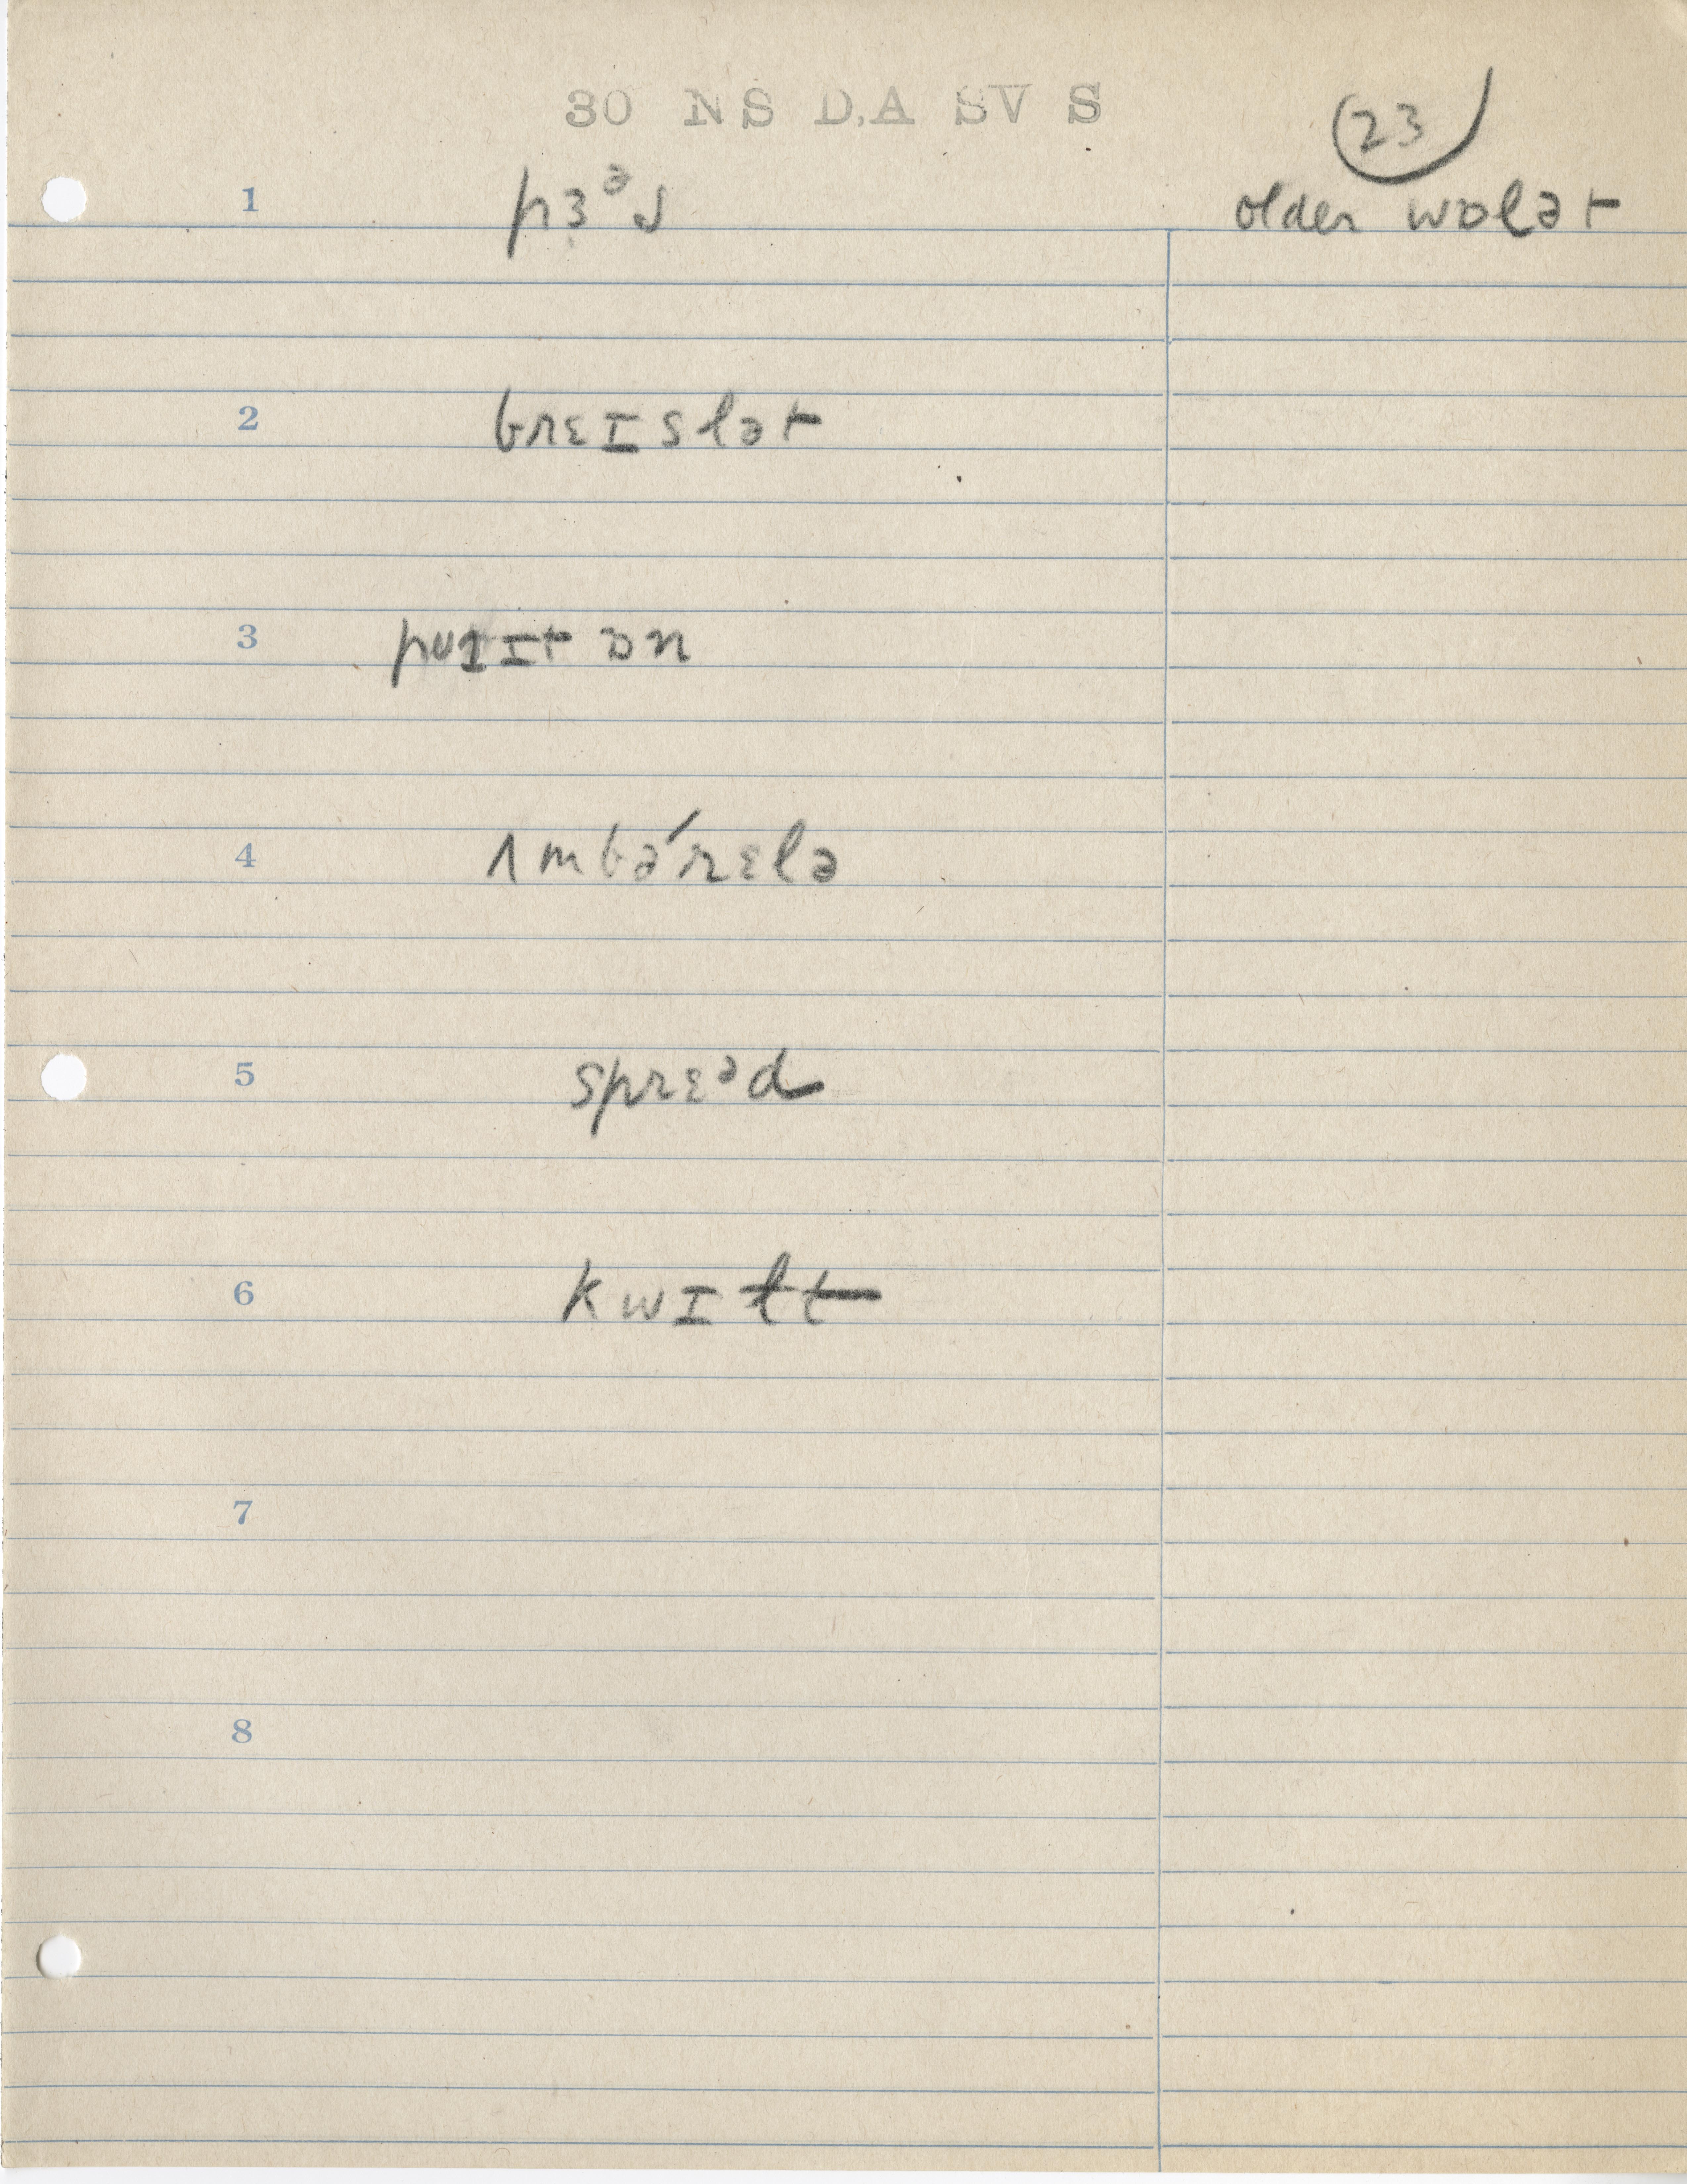 30 NS D.A SV S
23
1 pɜᵊs older wɒlət
2 brɛɪslət
3 puɪ ɪt ɒn
4 ʌmbəˊrɛlə
5 sprɛᵊd
6 kwɪɫt
7
8